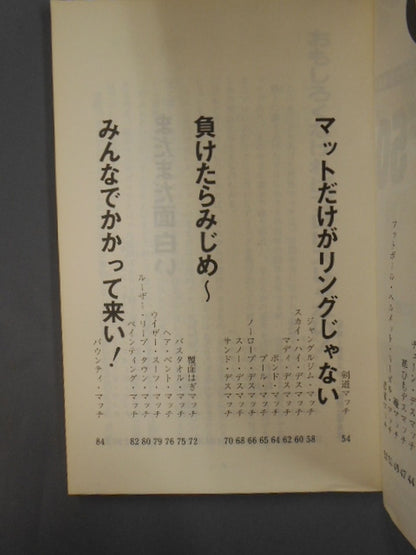 剣道マッチ 54
マットだけがリングじゃない
ジャングルジム・マッチ 58
スカイ・ハイ・デスマッチ 60
マディ・デスマッチ 62
ボンド・マッチ 64
プール・マッチ 65
ノーロープ・デスマッチ 66
スノー・デスマッチ 68
サンド・デスマッチ 70
負けたらみじめ〜
覆面はぎマッチ 72
バスタオル・マッチ 75
ヘア・ベント・マッチ 76
ウイザー・スーツ・マッチ 79
ルーザー・リーブ・タウン・マッチ 80
ペインティング・マッチ 82
みんなでかかって来い！
バウンティ・マッチ 84